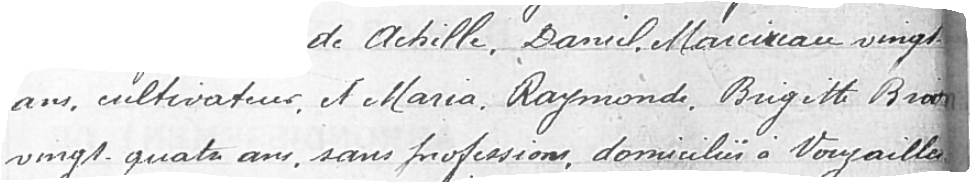 de Achille, Daniel, Marcireau vingt-
ans, cultivateur, et Maria, Raymonde, Brigitte Brion
vingt-quatre ans, sans profession, domiciliés à Vouzailles